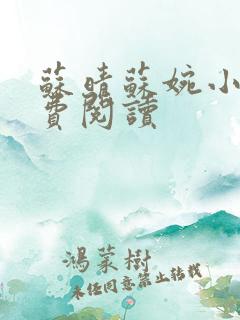 蘇晴蘇婉小
費閱讀
鴻蒙樹
未经同意禁止转载